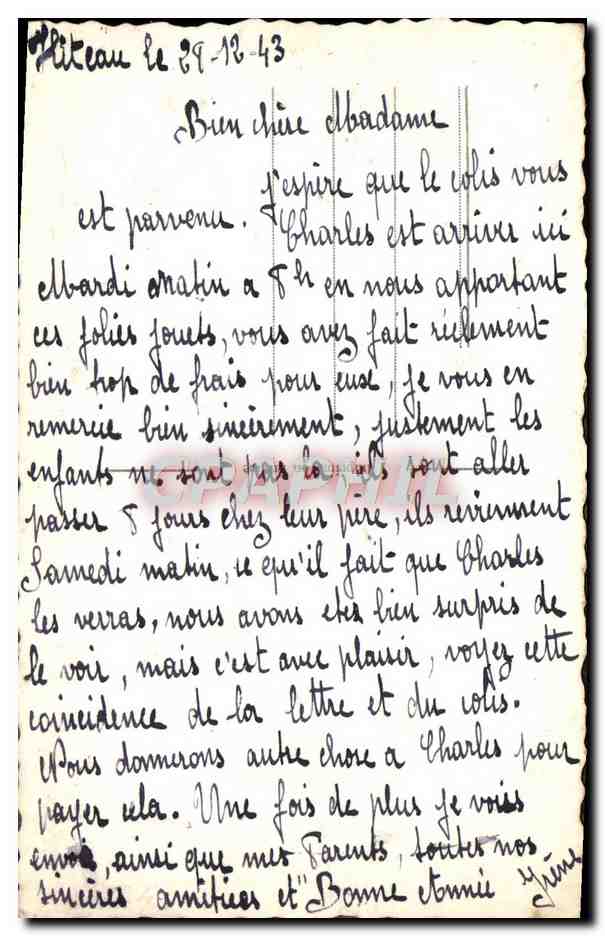 le 29-12-43
Bien chère Madame
J'espère que le colis vous
est parvenu. Charles est arriver ici
Mardi matin a 8h en nous apportant
ces jolies jouets, vous avez fait réelement
bien trop de frais pour eux, je vous en
remercie bien sincèrement, justement les
enfants ne sont pas la, ils sont aller
passer 8 jours chez leur père, ils reviennent
Samedi matin, ce qu'il fait que Charles
les verras, nous avons etes bien surpris de
le voir, mais c'est avec plaisir, voyez cette
coincidence de la lettre et du colis.
Nous donnerons autre chose a Charles pour
payer cela. Une fois de plus je vous
envoie, ainsi que mes Parents, toutes nos
sincères amitiées et "Bonne Année
Irène
CPAPHIL